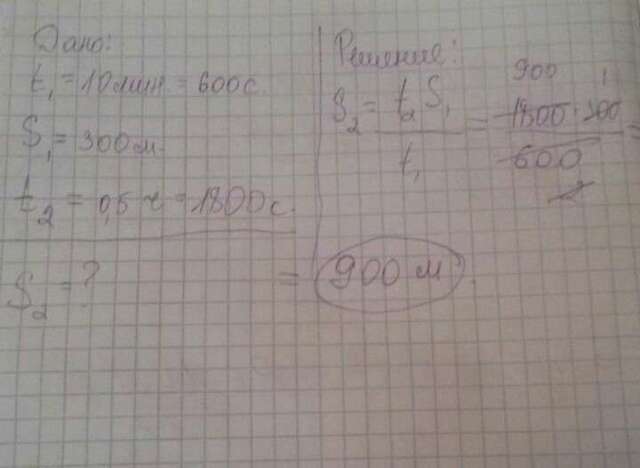 Дано:
t₁ = 10 мин = 600 с
S₁ = 300 м
t₂ = 0,5 ч = 1800 с.
S₂ = ?
Решение:
S₂ = t₂ S₁ / t₁ = 1800 · 300 / 600 =
900 1
2
= 900 м